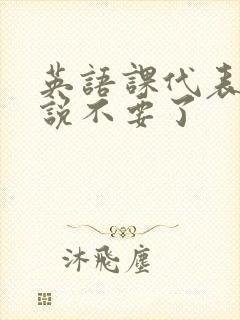 英語課代表
説不要了
沐飛塵